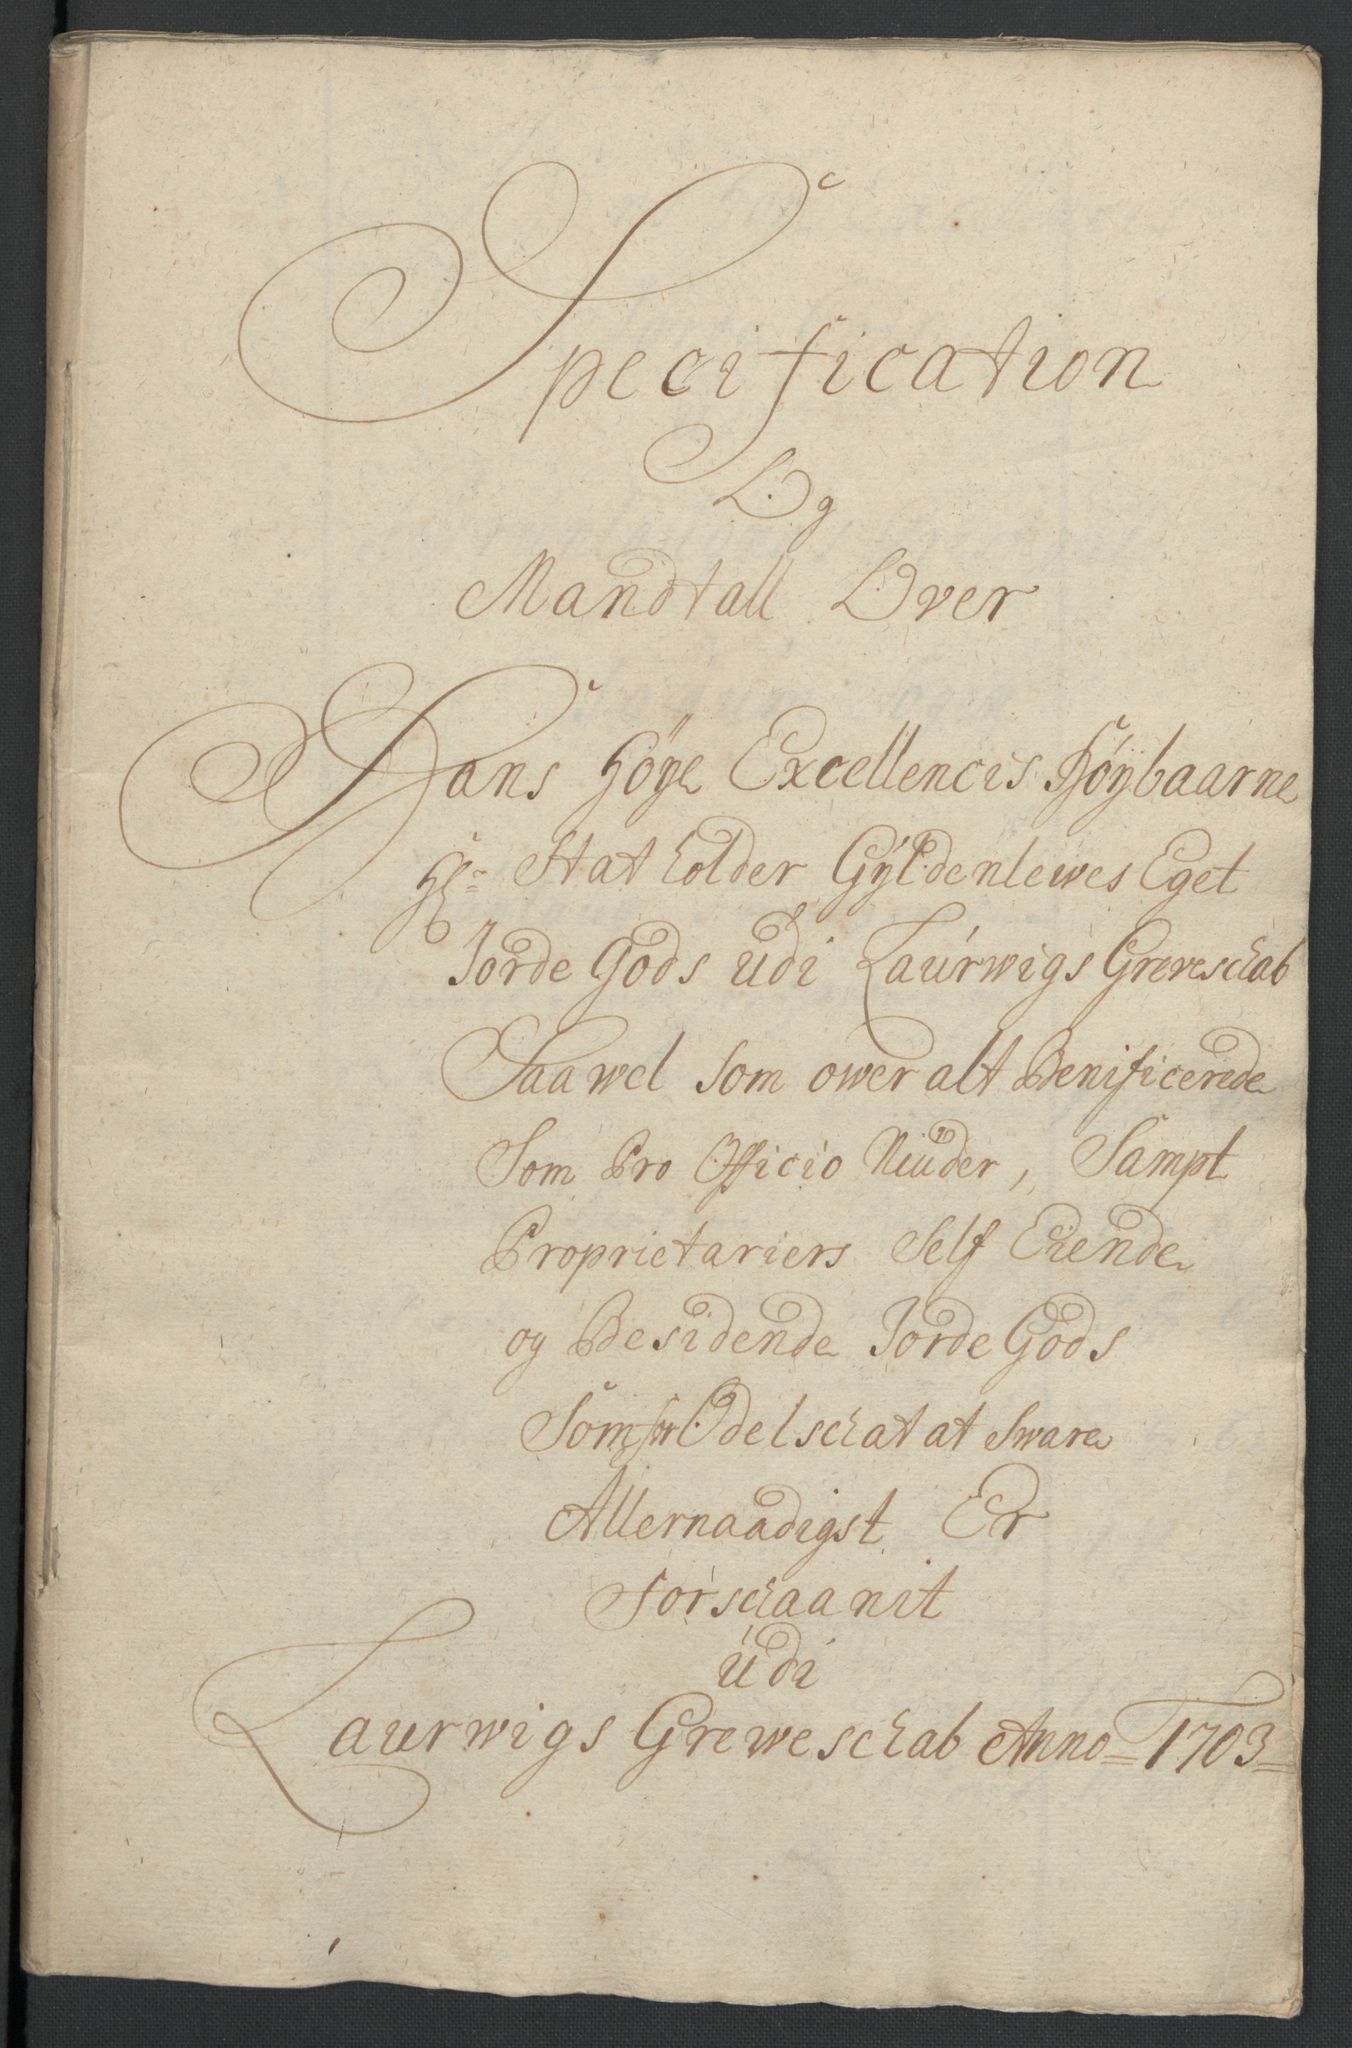 Specification
Og
Mandtall Over
Hans Höye Excellencis Höybaarne
Hr= Stat holder Gyldenlewes Eget
Jorde Gods udi Laurwigs Greveschab
Saawel Som ower alt Benificerede
Som Pro Officio Niuder, Sampt
Proprietariers Self Eiende
og Besidende Jorde Gods
Som for Odelschat at Sware
Allernaadigst Er
Forschaanit
udi
Laurwigs Greweschab Anno=1703=